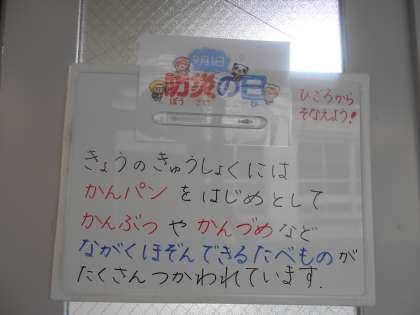 9月1日
防災の日
ぼう さい ひ
ひごろから
そなえよう！
きょうのきゅうしょくには
かんパンをはじめとして
かんぶつやかんづめなど
ながくほぞんできるたべものが
たくさんつかわれています.